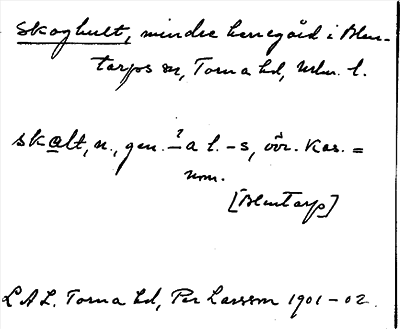 Skoghult, mindre herregård i Blen-
tarps sn, Torna hd, Mlm. l.
skalt, n., gen. -a l. -s, övr. Kas. =
nom.
[Blentarp]
L A L. Torna hd, Per Larsson 1901-02.